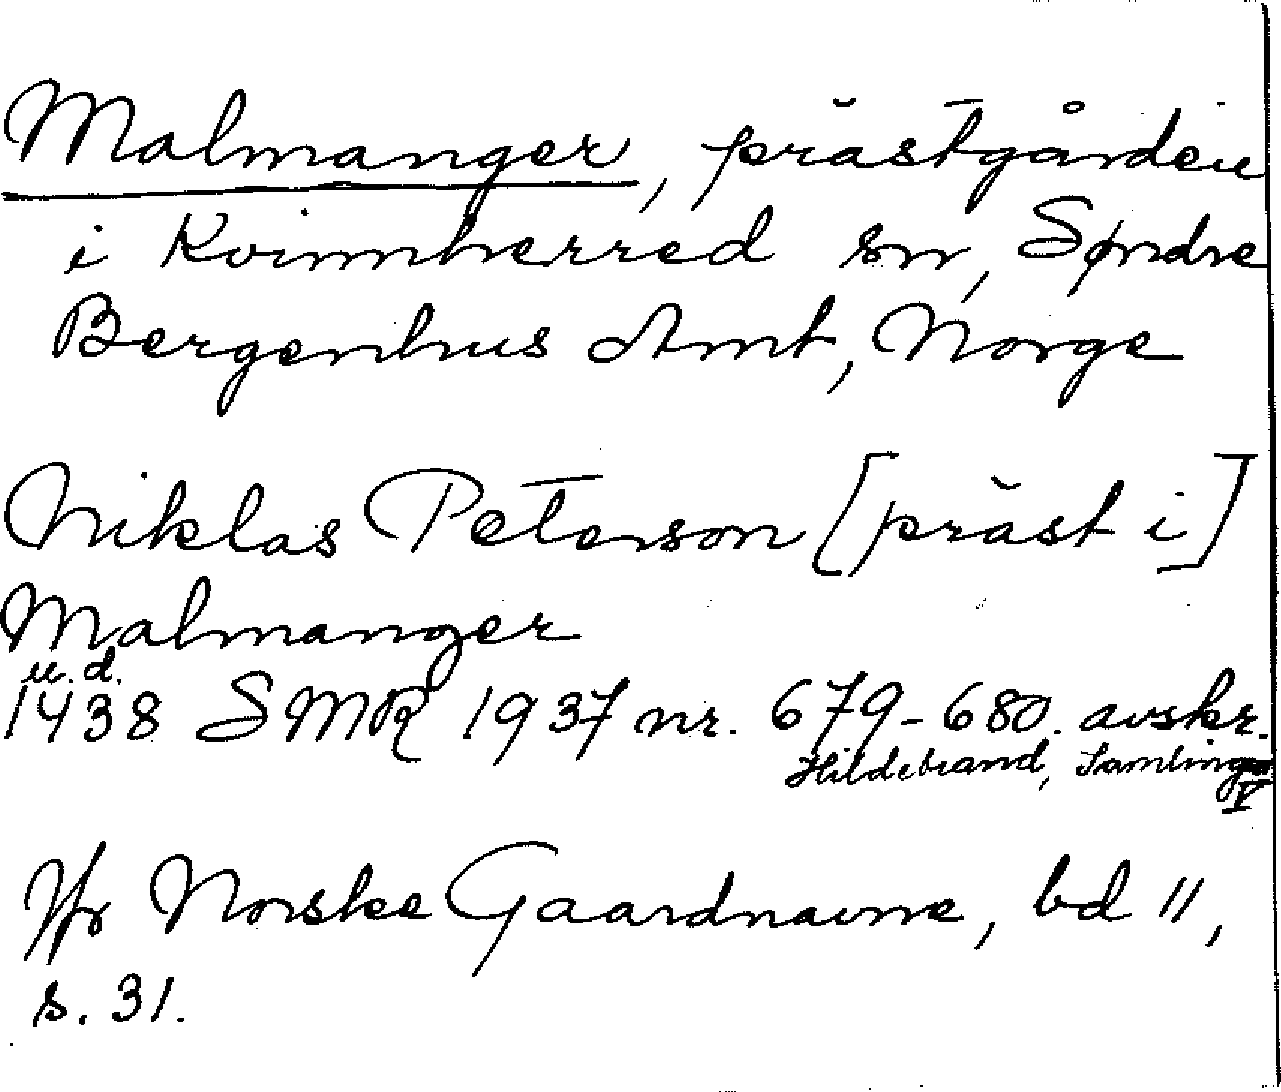 Malmanger, prästgården
i Kvinnherred sn, Søndre
Bergenhus Amt, Norge
Niklas Peterson [präst i]
Malmanger
u. d.
1438 SMR 1937 nr. 679-680. avskr.
Hildebrand, Samlingar
V
Jfr Norske Gaardnavne, bd 11,
s. 31.